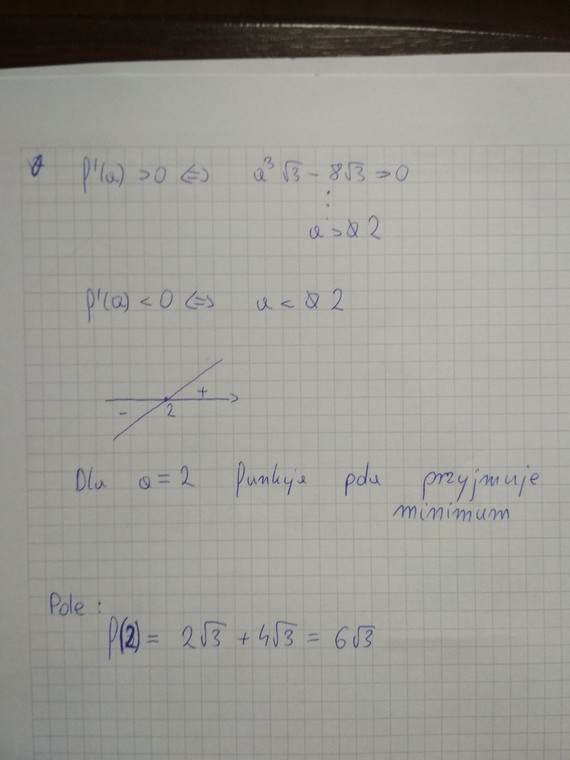 P'(a) > 0 <=> a³√3 - 8√3 => 0
⋮
a > 2
P'(a) < 0 <=> a < 2
- 2 +
Dla a = 2 funkcja pola przyjmuje
minimum
Pole :
P(2) = 2√3 + 4√3 = 6√3